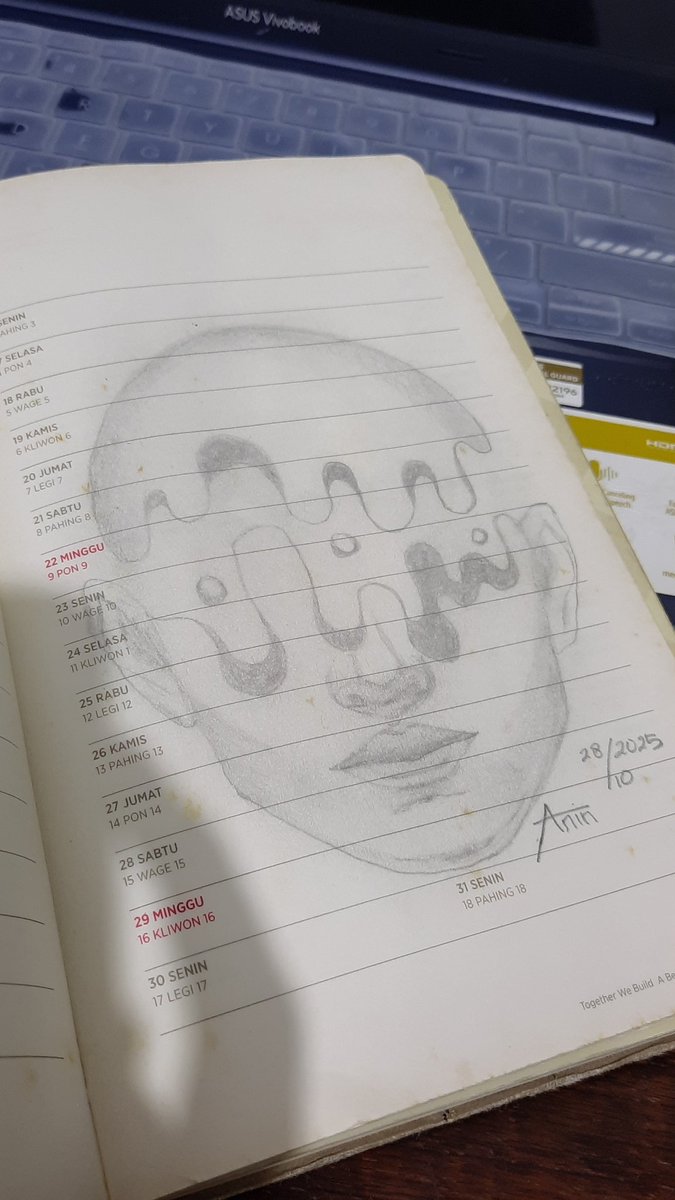 ASUS Vivobook
SENIN
PAHING 3
SELASA
PON 4
18 RABU
5 WAGE 5
19 KAMIS
6 KLIWON 6
20 JUMAT
7 LEGI 7
21 SABTU
8 PAHING 8
22 MINGGU
9 PON 9
23 SENIN
10 WAGE 10
24 SELASA
11 KLIWON 1
25 RABU
12 LEGI 12
26 KAMIS
13 PAHING 13
27 JUMAT
14 PON 14
28 SABTU
15 WAGE 15
29 MINGGU
16 KLIWON 16
30 SENIN
17 LEGI 17
31 SENIN
18 PAHING 18
28/10/2025
Anin
Together We Build A Be